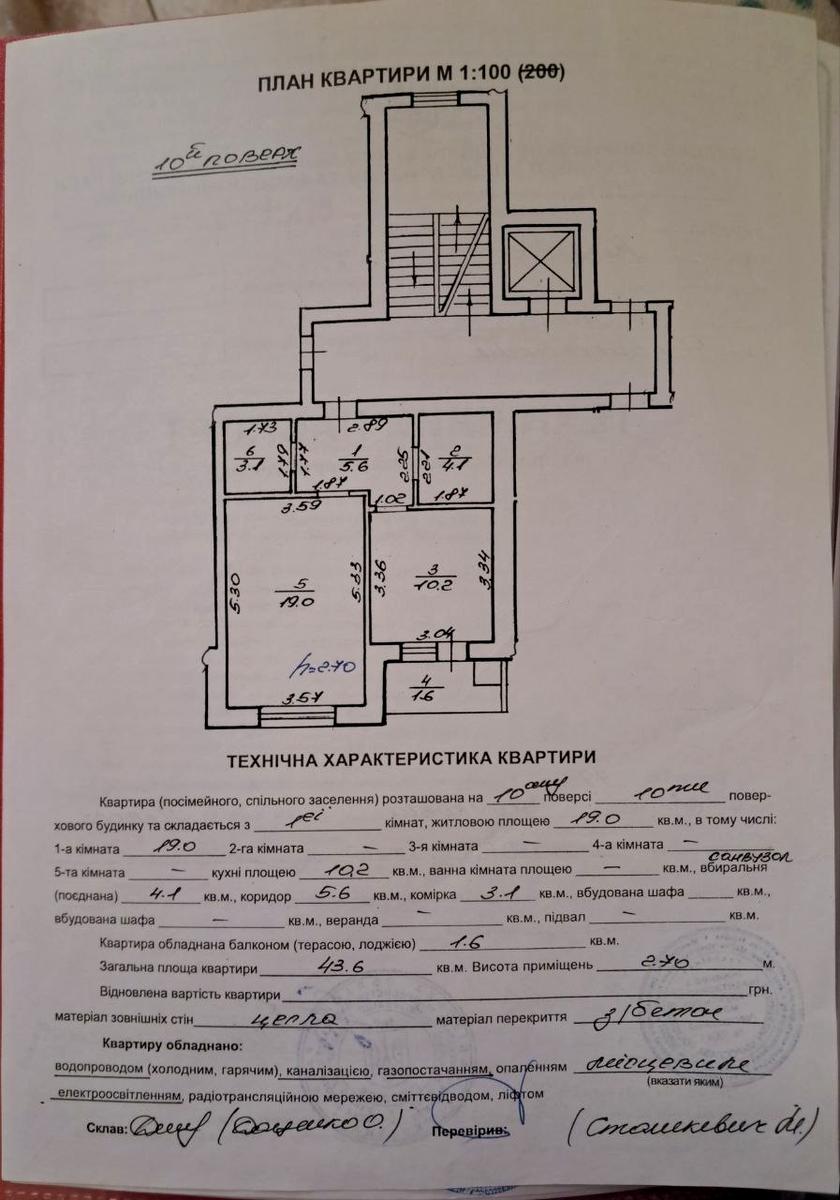 ПЛАН КВАРТИРИ М 1:100 (200)
10й поверх
1.73
2.89
6
3.1
1.79
1.77
1
5.6
2.25
2.21
2
4.1
1.87
1.02
1.87
3.59
5.30
5
19.0
5.33
3.36
3
10.2
3.34
3.04
h=2.70
3.57
4
1.6
ТЕХНІЧНА ХАРАКТЕРИСТИКА КВАРТИРИ
Квартира (посімейного, спільного заселення) розташована на 10ому поверсі 10ти повер-
хового будинку та складається з 1єї кімнат, житловою площею 19.0 кв.м., в тому числі:
1-а кімната 19.0 2-га кімната – 3-я кімната – 4-а кімната –
санвузол
5-та кімната – кухні площею 10,2 кв.м., ванна кімната площею – кв.м., вбиральня
(поєднана) 4.1 кв.м., коридор 5.6 кв.м., комірка 3.1 кв.м., вбудована шафа кв.м.,
вбудована шафа – кв.м., веранда – кв.м., підвал – кв.м.
Квартира обладнана балконом (терасою, лоджією) 1.6 кв.м.
Загальна площа квартири 43.6 кв.м. Висота приміщень 2.70 м.
Відновлена вартість квартири грн.
матеріал зовнішніх стін цегла матеріал перекриття з/бетон
Квартиру обладнано:
водопроводом (холодним, гарячим), каналізацією, газопостачанням, опаленням місцевим
(вказати яким)
електроосвітленням, радіотрансляційною мережею, сміттєвідводом, ліфтом
Склав: Перевірив: